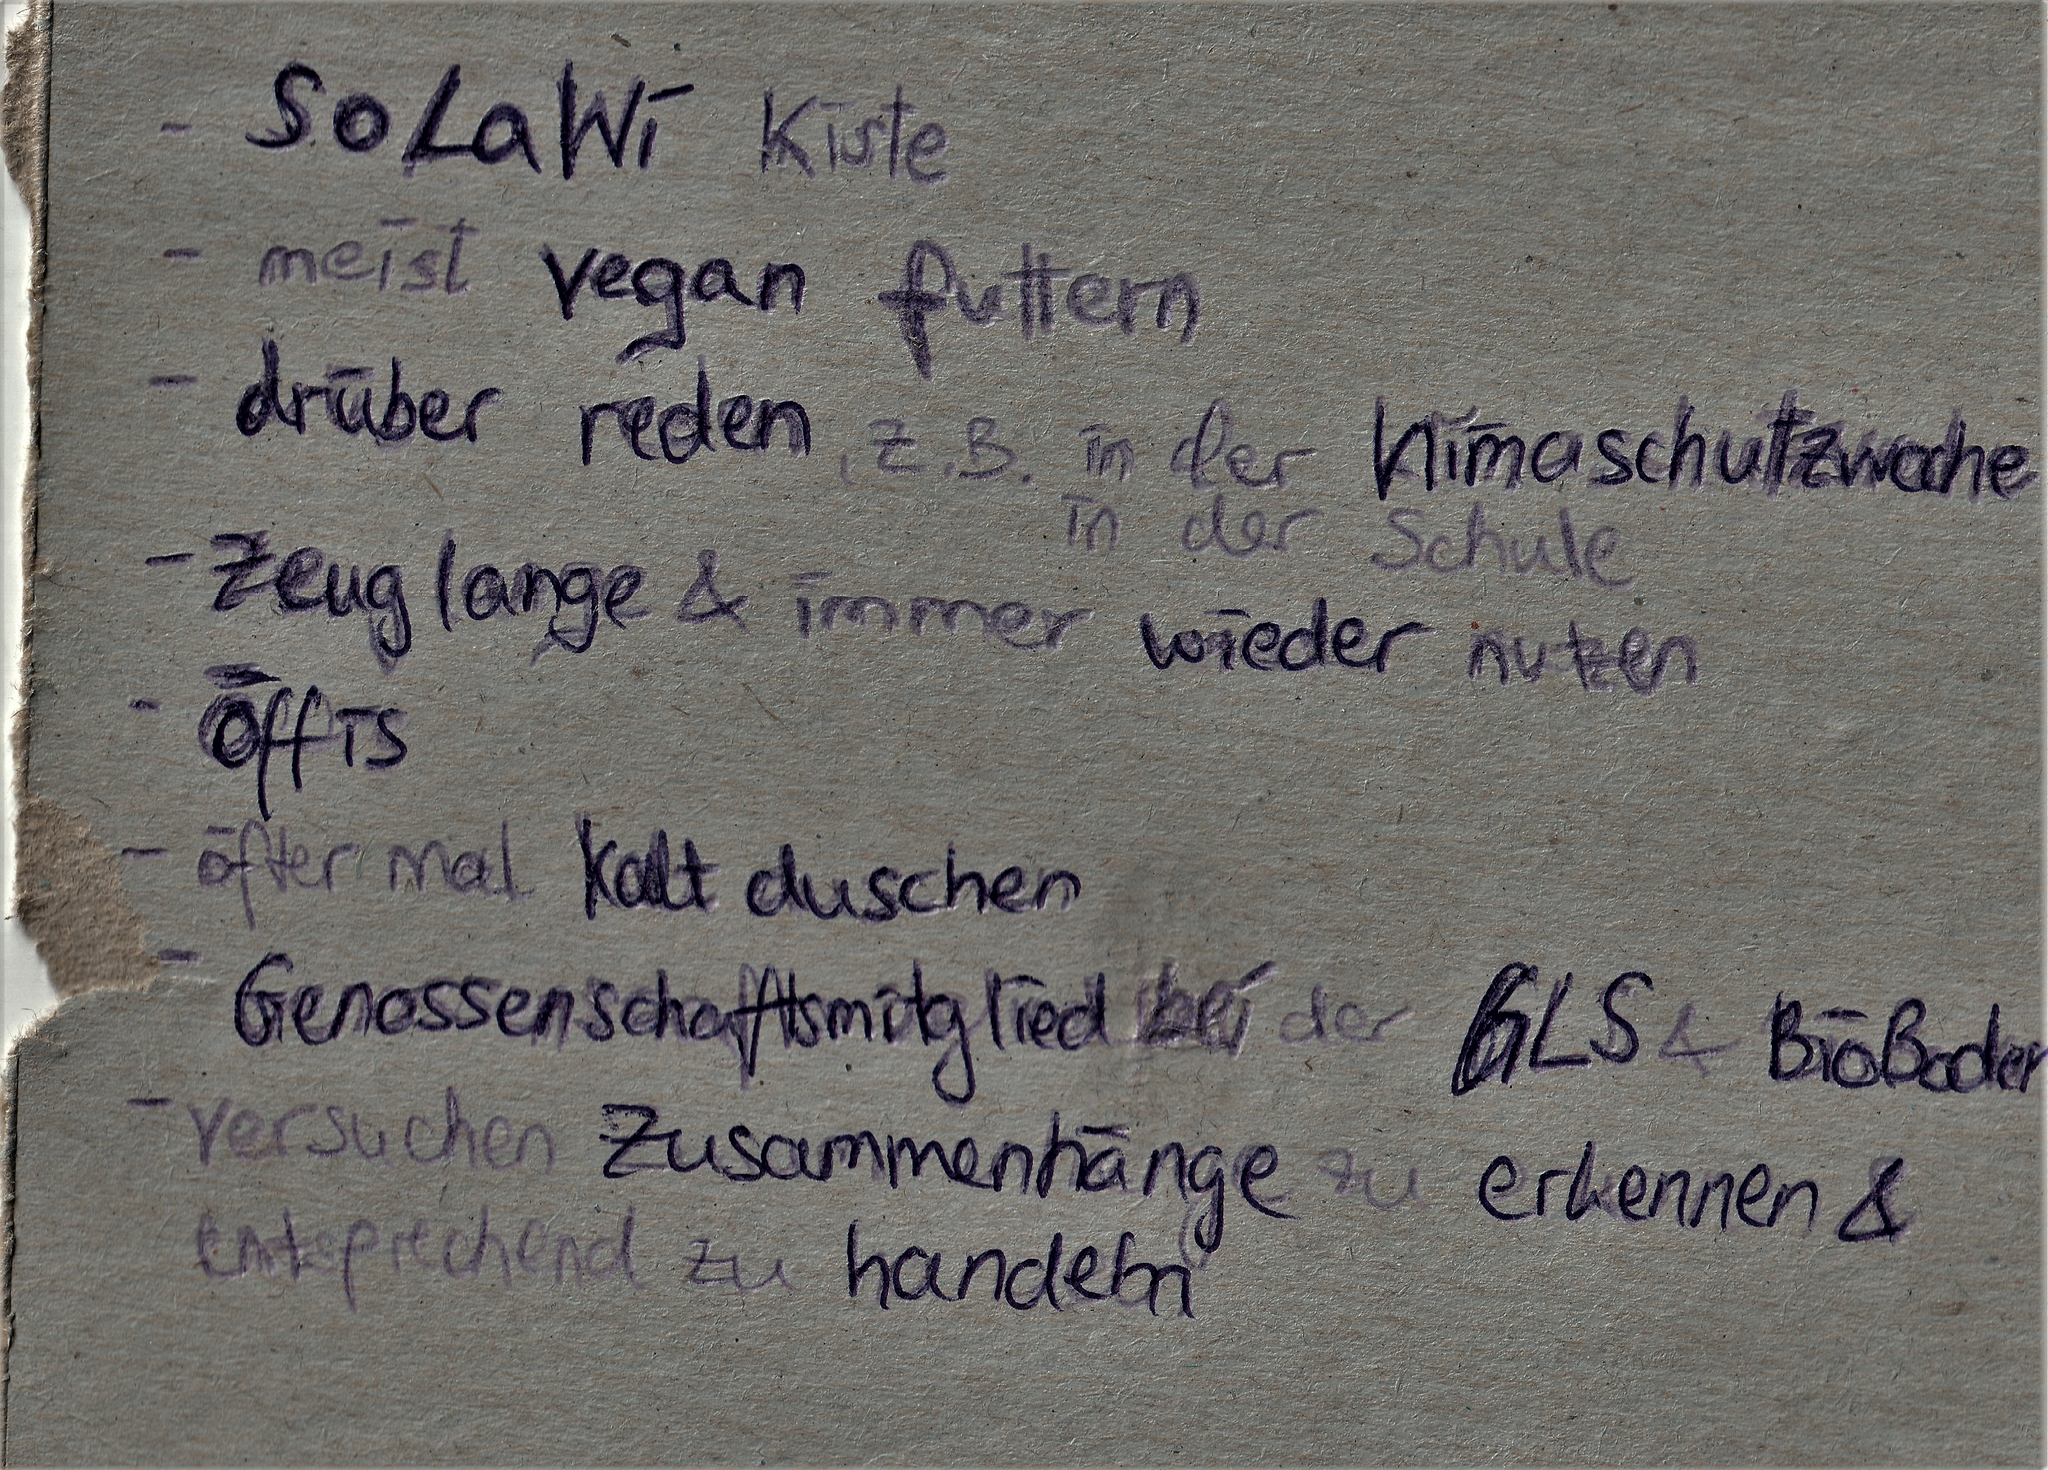 - SoLaWi Kiste
- meist vegan futtern
- drüber reden, z.B. in der Klimaschutzwoche
in der Schule
- Zeug lange & immer wieder nutzen
- Öffis
- öfter mal kalt duschen
- Genossenschaftsmitglied bei der GLS & BioBoden
- versuchen Zusammenhänge zu erkennen &
entsprechend zu handeln